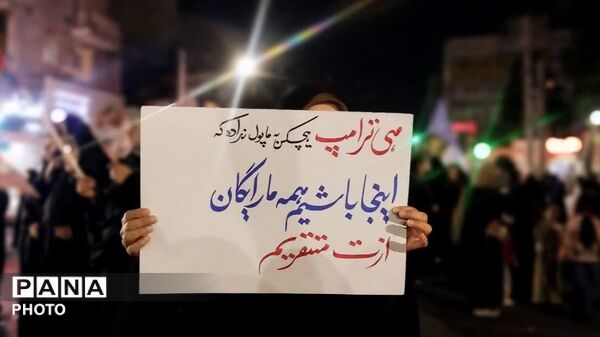 هی ترامپ هیچکس به ما پول نداده که
اینجا باشیم همه ما رایگان
ازت متنفریم
PANA
PHOTO